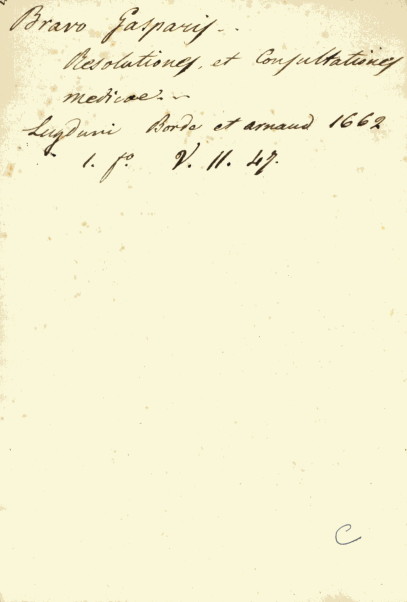 Bravo Gasparis..
Resolutiones, et Consultationes
medicae..
Lugduni Borde et arnaud 1662
1. fo. V. 11. 47.
C